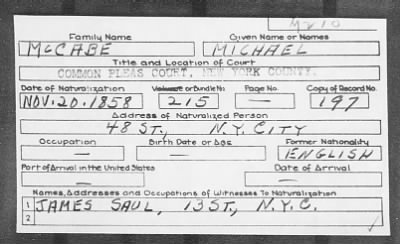 M210
Family Name Given Name or Names
McCABE MICHAEL
Title and Location of Court
COMMON PLEAS COURT, NEW YORK COUNTY.
Date of Naturalization Volume or Bundle No. Page No. Copy of Record No.
NOV. 20. 1858 215 — 197
Address of Naturalized Person
48 ST., N.Y. CITY
Occupation Birth Date or Age Former Nationality
— — ENGLISH
Port of Arrival in the United States Date of Arrival
— —
Names, Addresses and Occupations of Witnesses To Naturalization
1 JAMES SAUL, 13 ST., N.Y.C.
2